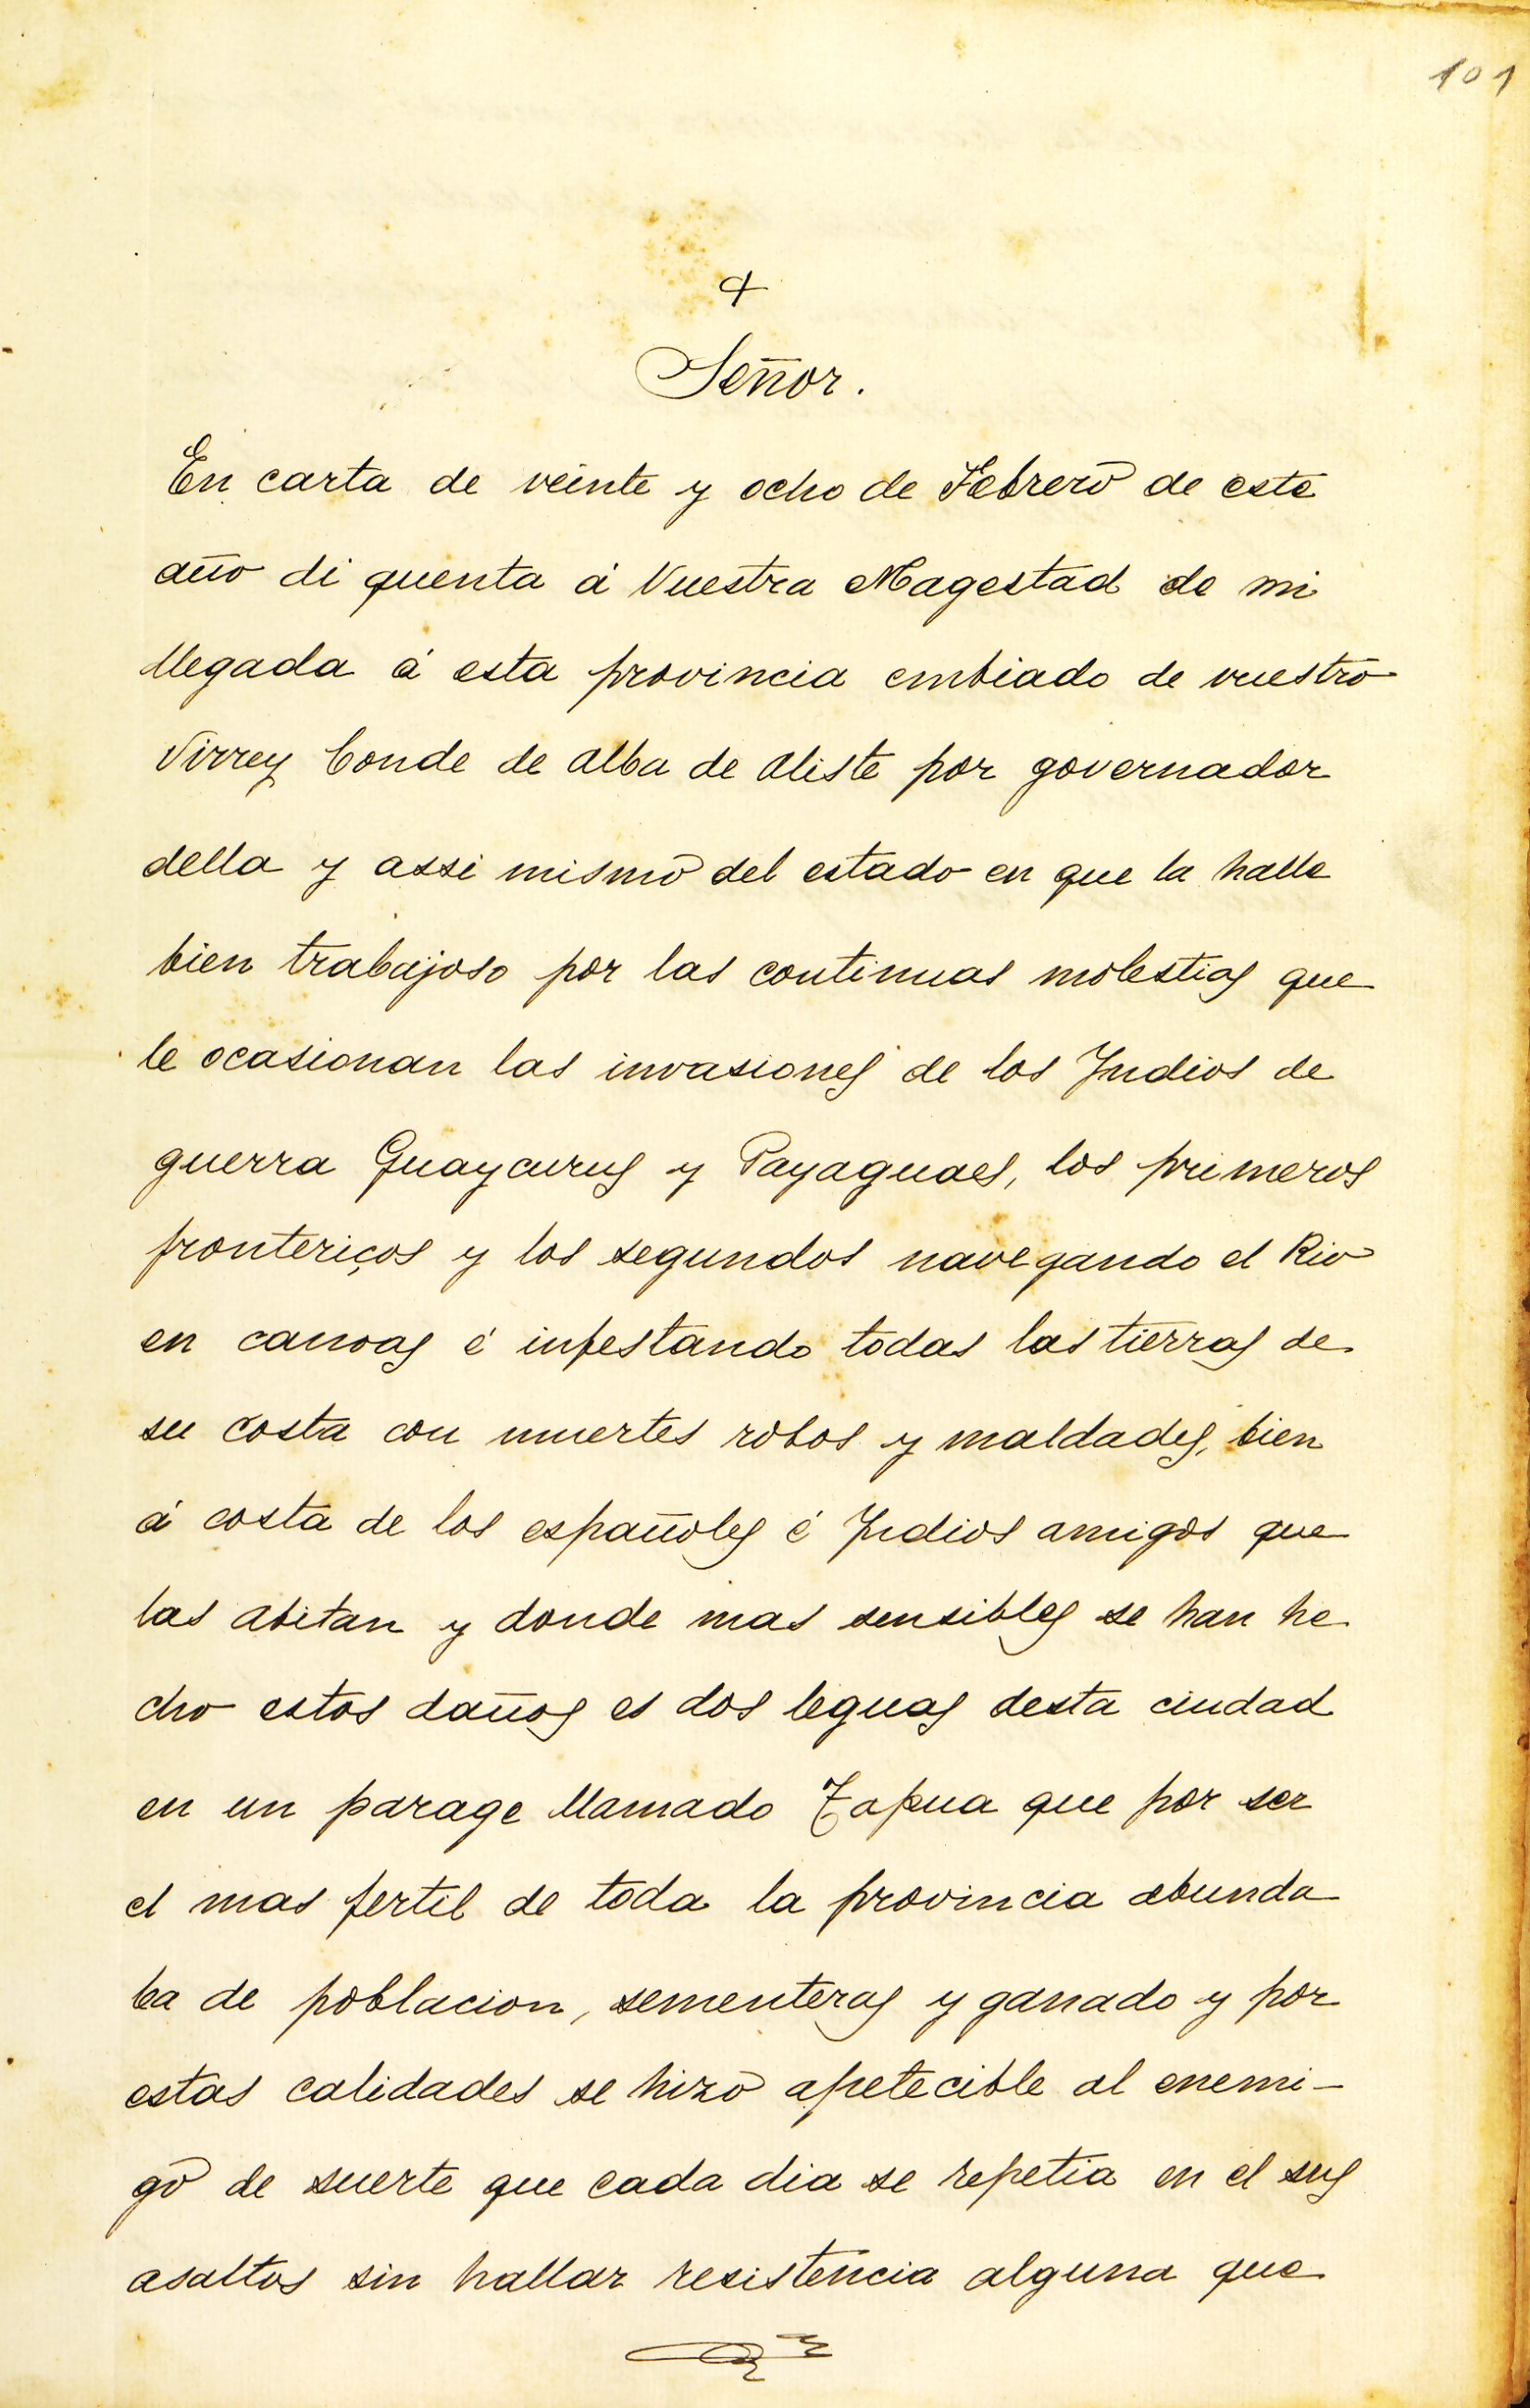 101
+
Señor.
En carta de veinte y ocho de Febrero de este
año di quenta á Vuestra Magestad de mi
llegada á esta provincia embiado de vuestro
Virrey Conde de Alba de Aliste por governador
della y assi mismo del estado en que la halle
bien trabajoso por las continuas molestias que
le ocasionan las invasiones de los Indios de
guerra Guaycurus y Payaguaes, los primeros
fronteriços y los segundos navegando el Rio
en canoas é infestando todas las tierras de
su costa con muertes robos y maldades, bien
á costa de los españoles é Indios amigos que
las abitan y donde mas sensibles se han he
cho estos daños es dos leguas desta ciudad
en un parage llamado Tapua que por ser
el mas fertil de toda la provincia abunda
ba de poblacion, sementeras y ganado y por
estas calidades se hizo apetecible al enemi-
go de suerte que cada dia se repetia en el sus
asaltos sin hallar resistencia alguna que